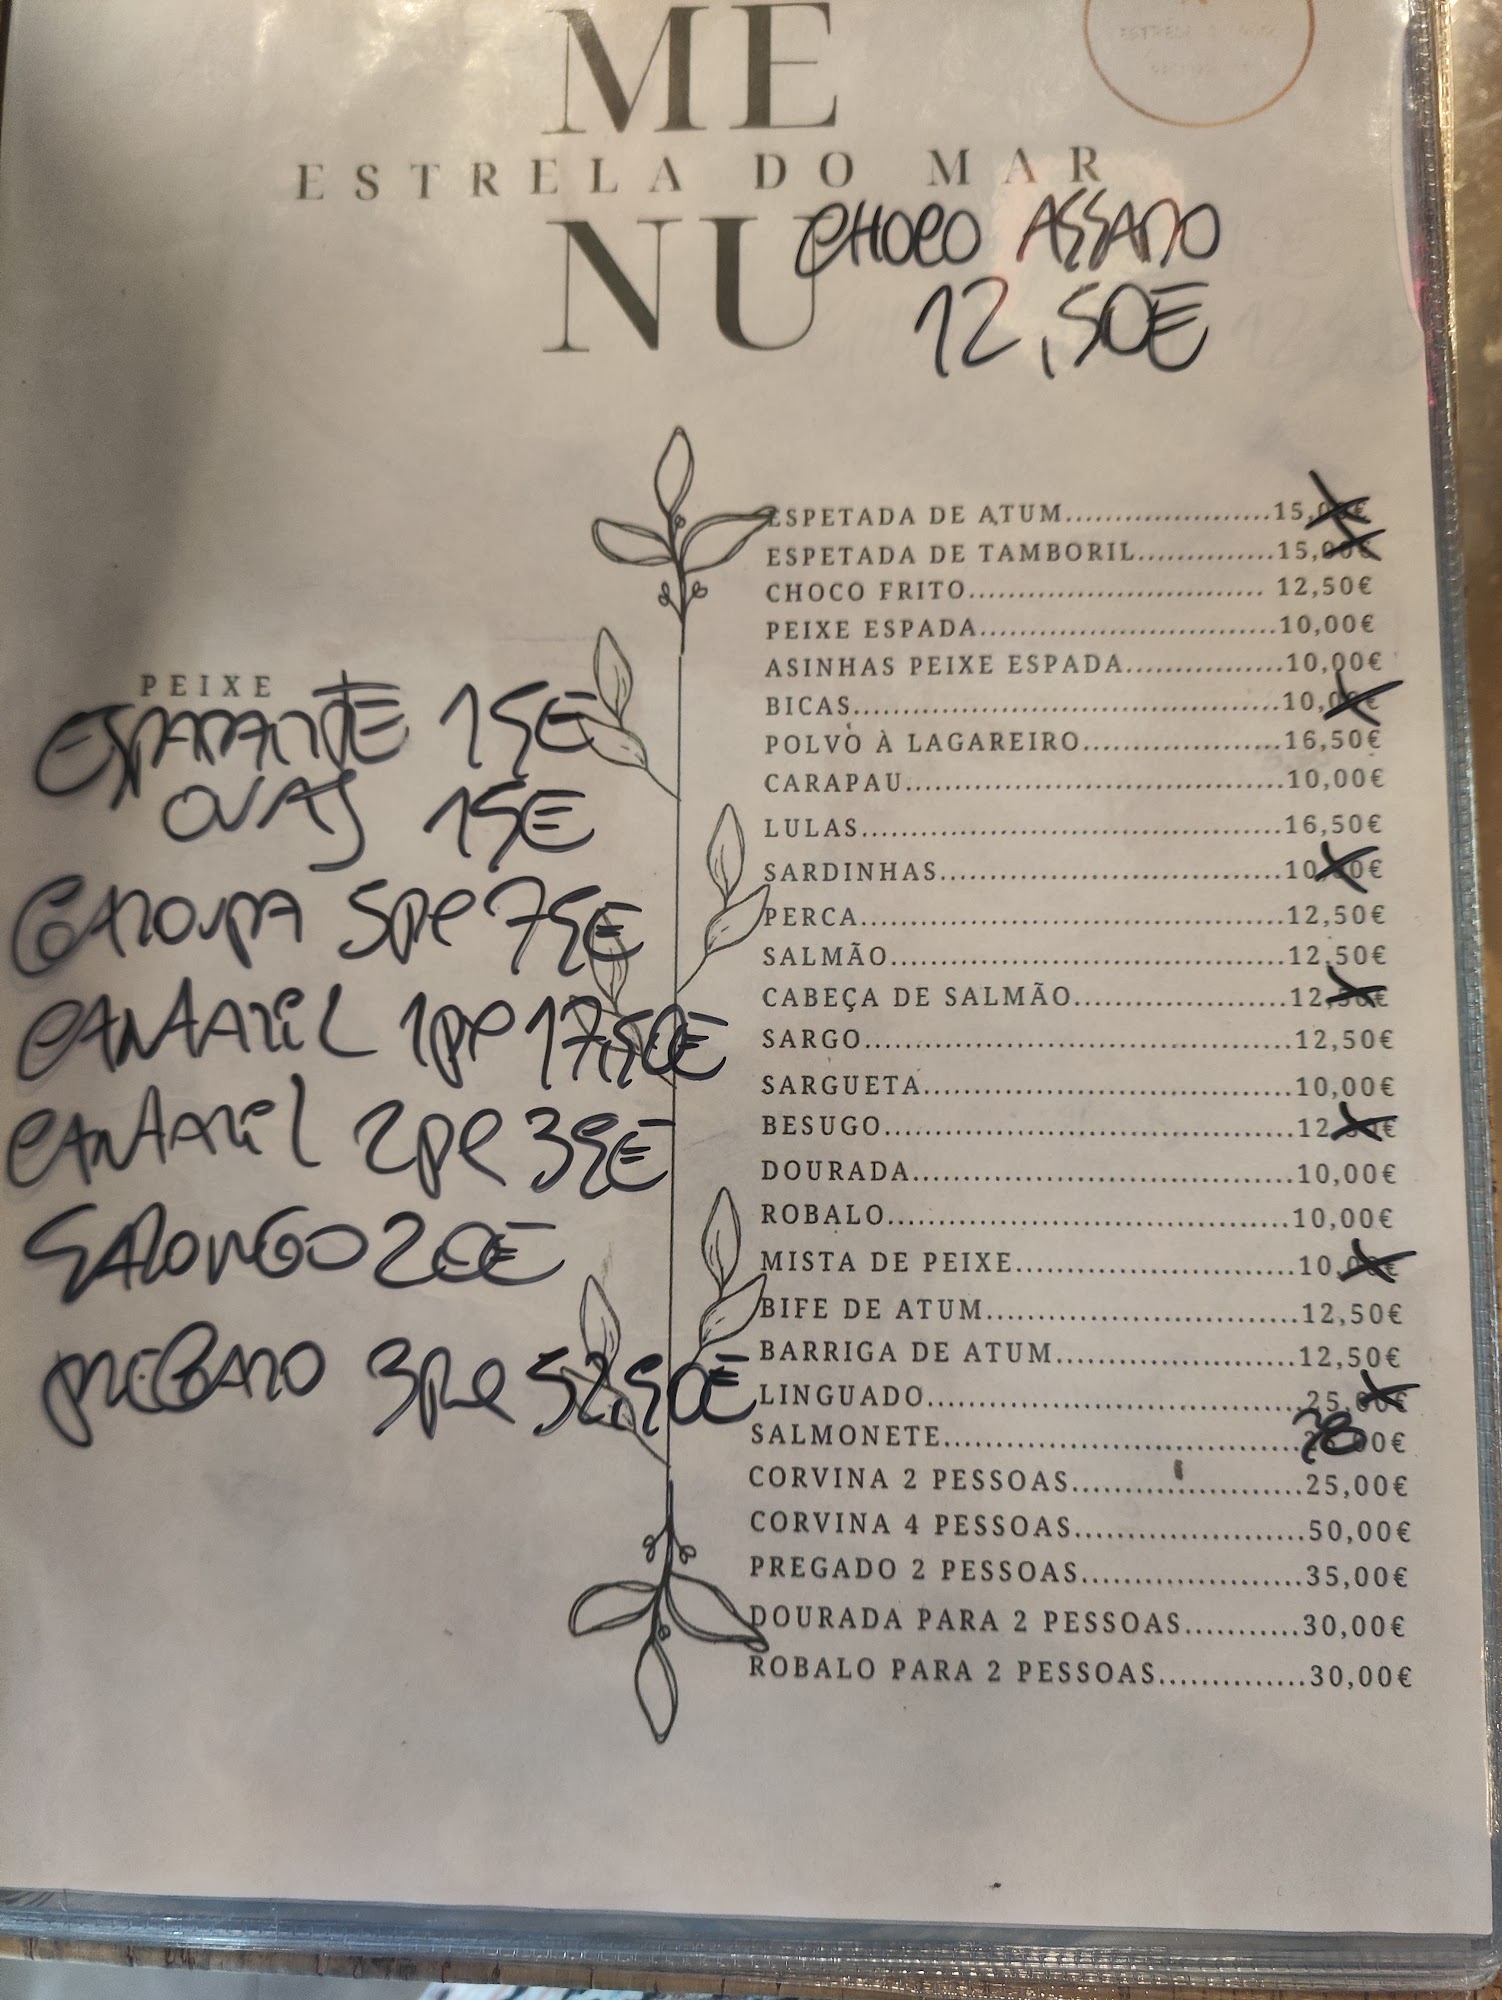 ME
ESTRELA DO MAR
NU
CHOCO ASSADO
12,50€
PEIXE
ESPADARTE 15€
OVAS 15€
GAROUPA 5pe 75€
CANTARIL 1pe 17,50€
CANTARIL 2pe 35€
SALONGO 20€
PREGADO 3pe 52,50€
ESPETADA DE ATUM......................15,00€
ESPETADA DE TAMBORIL..............15,00€
CHOCO FRITO............................... 12,50€
PEIXE ESPADA...............................10,00€
ASINHAS PEIXE ESPADA................10,00€
BICAS.............................................10,00€
POLVO À LAGAREIRO.....................16,50€
CARAPAU........................................10,00€
LULAS............................................16,50€
SARDINHAS....................................10,00€
PERCA.............................................12,50€
SALMÃO..........................................12,50€
CABEÇA DE SALMÃO.......................12,50€
SARGO.............................................12,50€
SARGUETA.......................................10,00€
BESUGO...........................................12,50€
DOURADA........................................10,00€
ROBALO...........................................10,00€
MISTA DE PEIXE..............................10,00€
BIFE DE ATUM.................................12,50€
BARRIGA DE ATUM..........................12,50€
LINGUADO........................................25,00€
SALMONETE.....................................28,00€
CORVINA 2 PESSOAS........................25,00€
CORVINA 4 PESSOAS........................50,00€
PREGADO 2 PESSOAS.......................35,00€
DOURADA PARA 2 PESSOAS...........30,00€
ROBALO PARA 2 PESSOAS..............30,00€